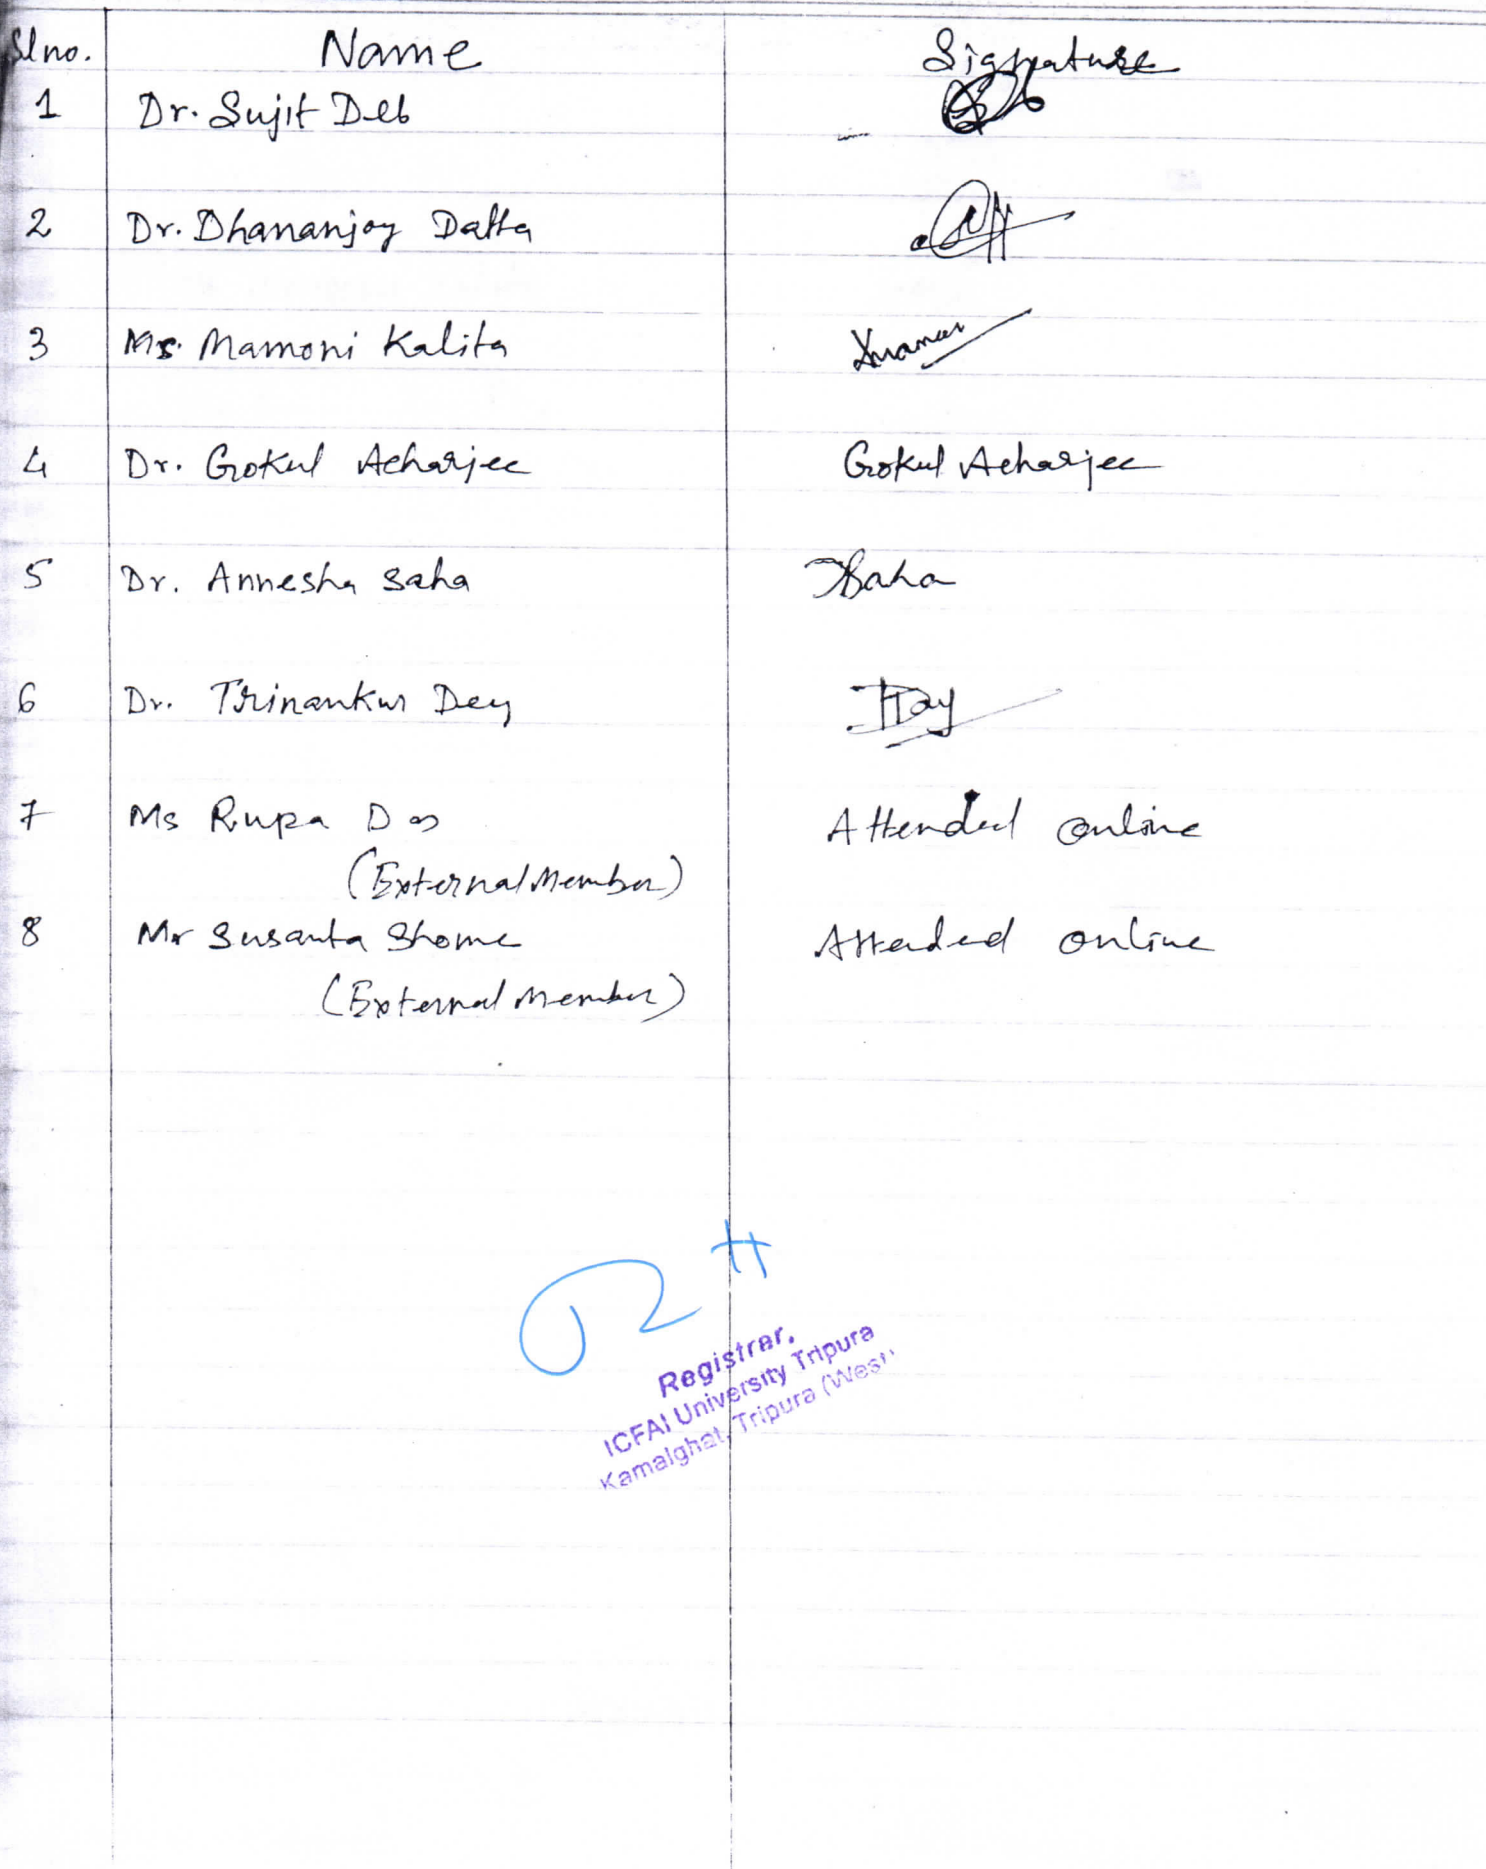 Sl no. Name Signature
1 Dr. Sujit Deb
2 Dr. Dhananjoy Datta
3 Ms. Mamoni Kalita
4 Dr. Gokul Acharjee Gokul Acharjee
5 Dr. Annesha Saha Saha
6 Dr. Trinankur Dey TDey
7 Ms Rupa Das Attended online
(External Member)
8 Mr Susanta Shome Attended online
(External Member)
Registrar,
ICFAI University Tripura
Kamalghat, Tripura (West)